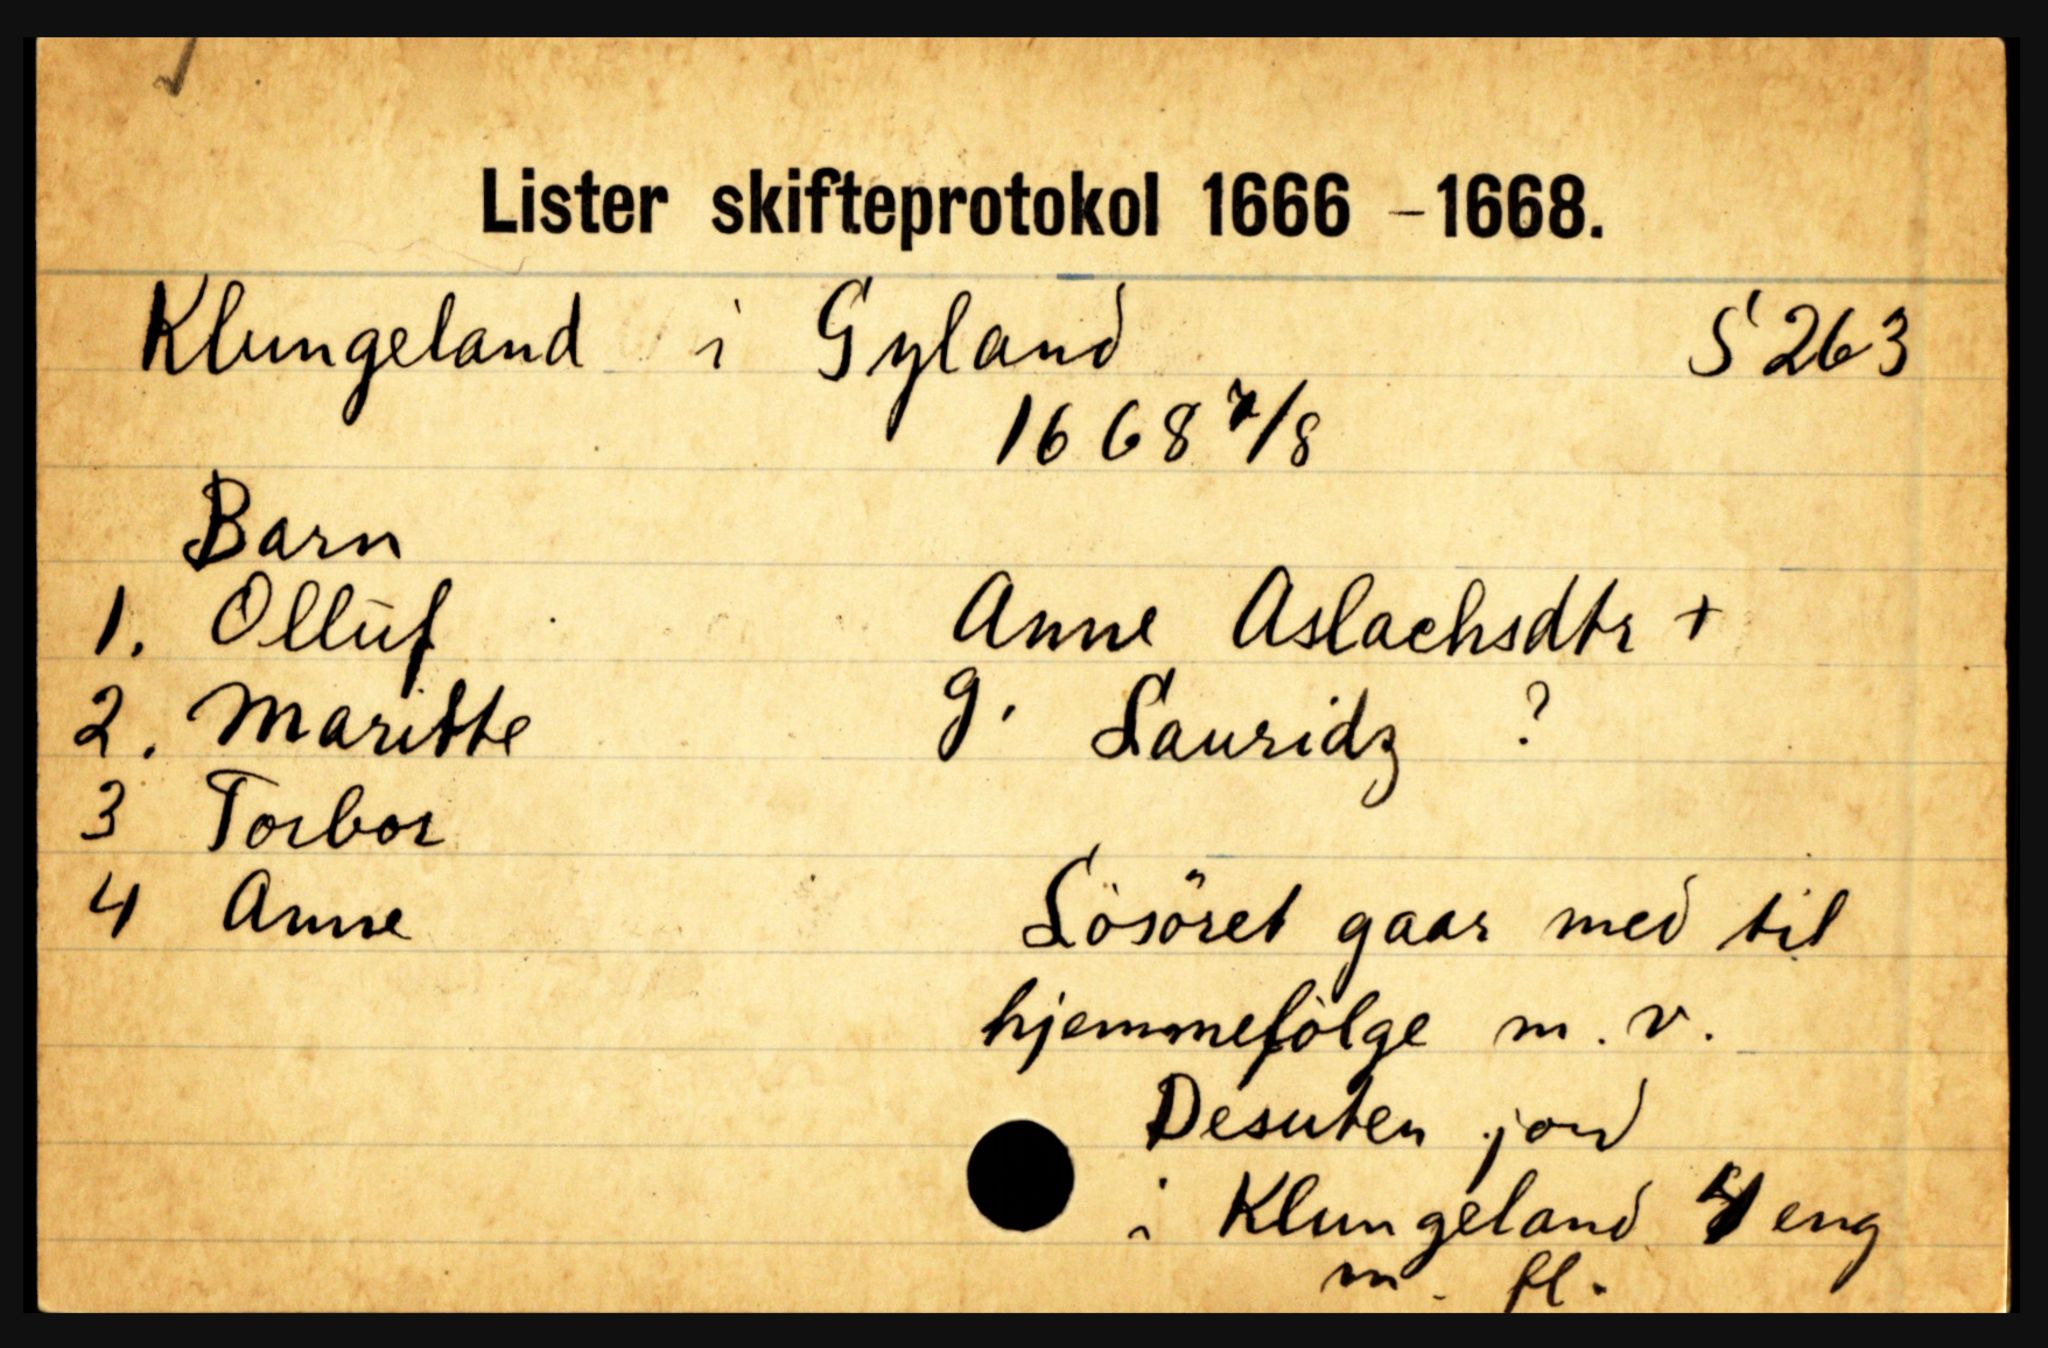 Lister skifteprotokol 1666 - 1668.
Klungeland i Gyland S 263
1668 7/8
Barn
1. Olluf Anne Aslachsdtr +
2. Maritte g. Lauridz ?
3 Torbor
4 Anne
Lösöret gaar med til
hjemmefölge m. v.
Desuten jord
i Klungeland 4 eng
m. fl.